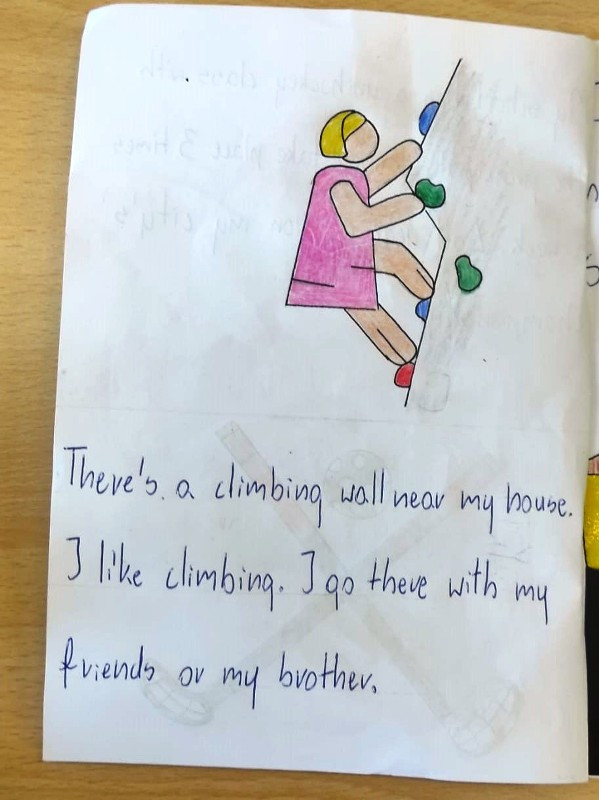 There's a climbing wall near my house.
I like climbing. I go there with my
friends or my brother.